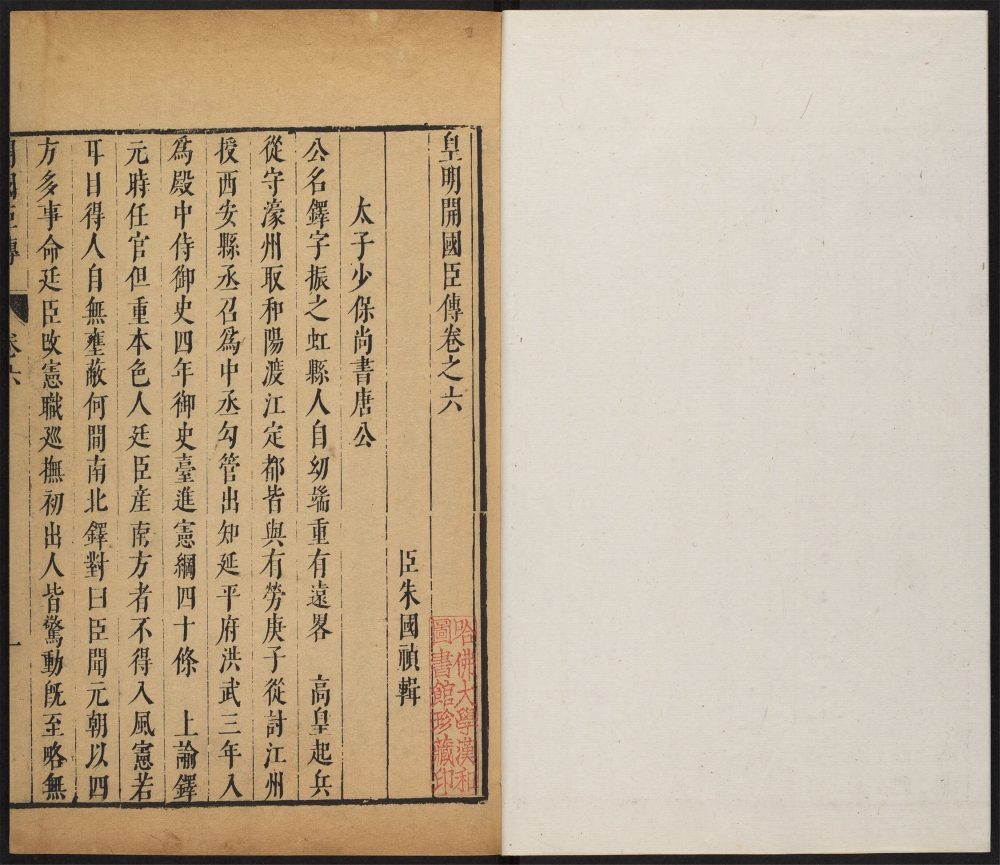 皇明開國臣傳卷之六
臣朱國禎輯
太子少保尚書唐公
公名鐸字振之虹縣人自幼端重有遠畧　高皇起兵
從守濠州取和陽渡江定都皆與有勞庚子從討江州
授西安縣丞召爲中丞勾管出知延平府洪武三年入
爲殿中侍御史四年御史臺進憲綱四十條　上諭鐸
元時任官但重本色人廷臣産南方者不得入風憲若
耳目得人自無壅蔽何間南北鐸對曰臣聞元朝以四
方多事命廷臣改憲職巡撫初出人皆驚動旣至略無
開國臣傳　卷六　一
哈佛大學漢和
圖書館珍藏印